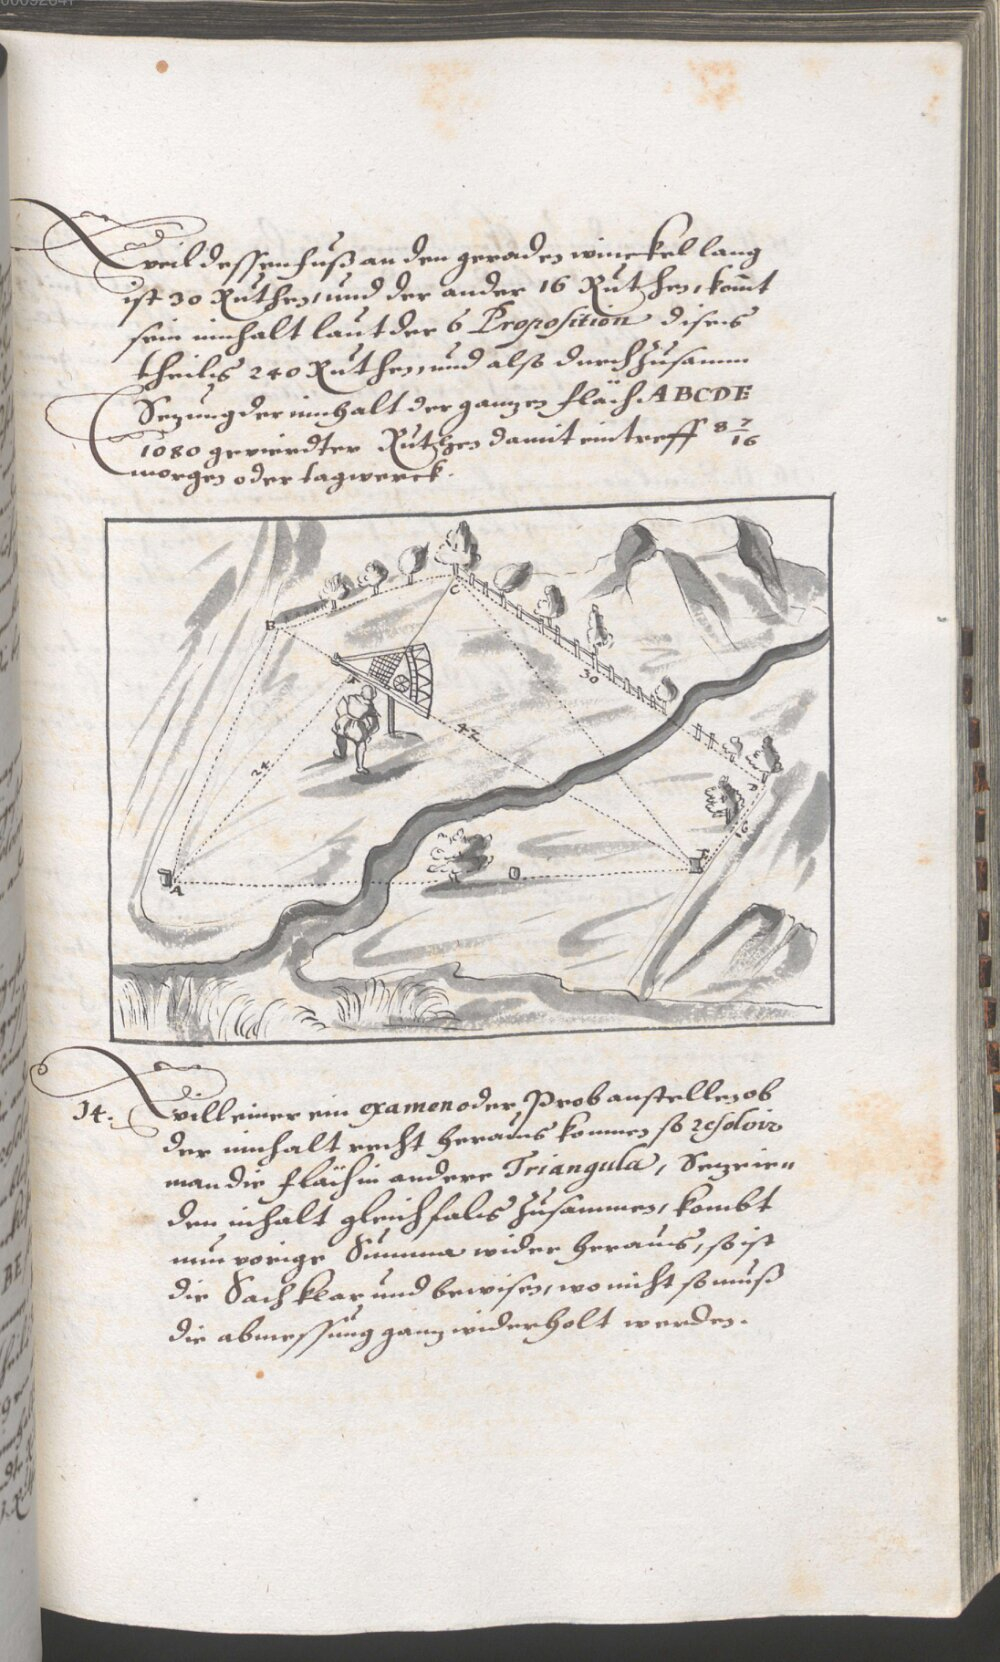 weil dessen fuß an den geraden winckel lang
ist 30 Ruthen, und der ander 16 Ruthen, komt
sein innhalt laut der 6 Proposition dises
theils 240 Ruthen, und also durch zusamm
Sezung der innhalt der ganzen fläch ABCDE
1080 gevierdter Ruthen damit eintreff 8 7/16
morgen oder tagwerck.
B
C
30
42
24
16
A
E
14. will einer ein examen oder Prob anstellen ob
der innhalt recht heraus kommen so resolvir
man die fläch in andere Triangula, Seze in
den inhalt gleichfals zusammen, kombt
nun vorige Summa wider heraus, so ist
die Sach klar und bewisen, wo nicht so muß
die abmessung ganz widerholt werden.